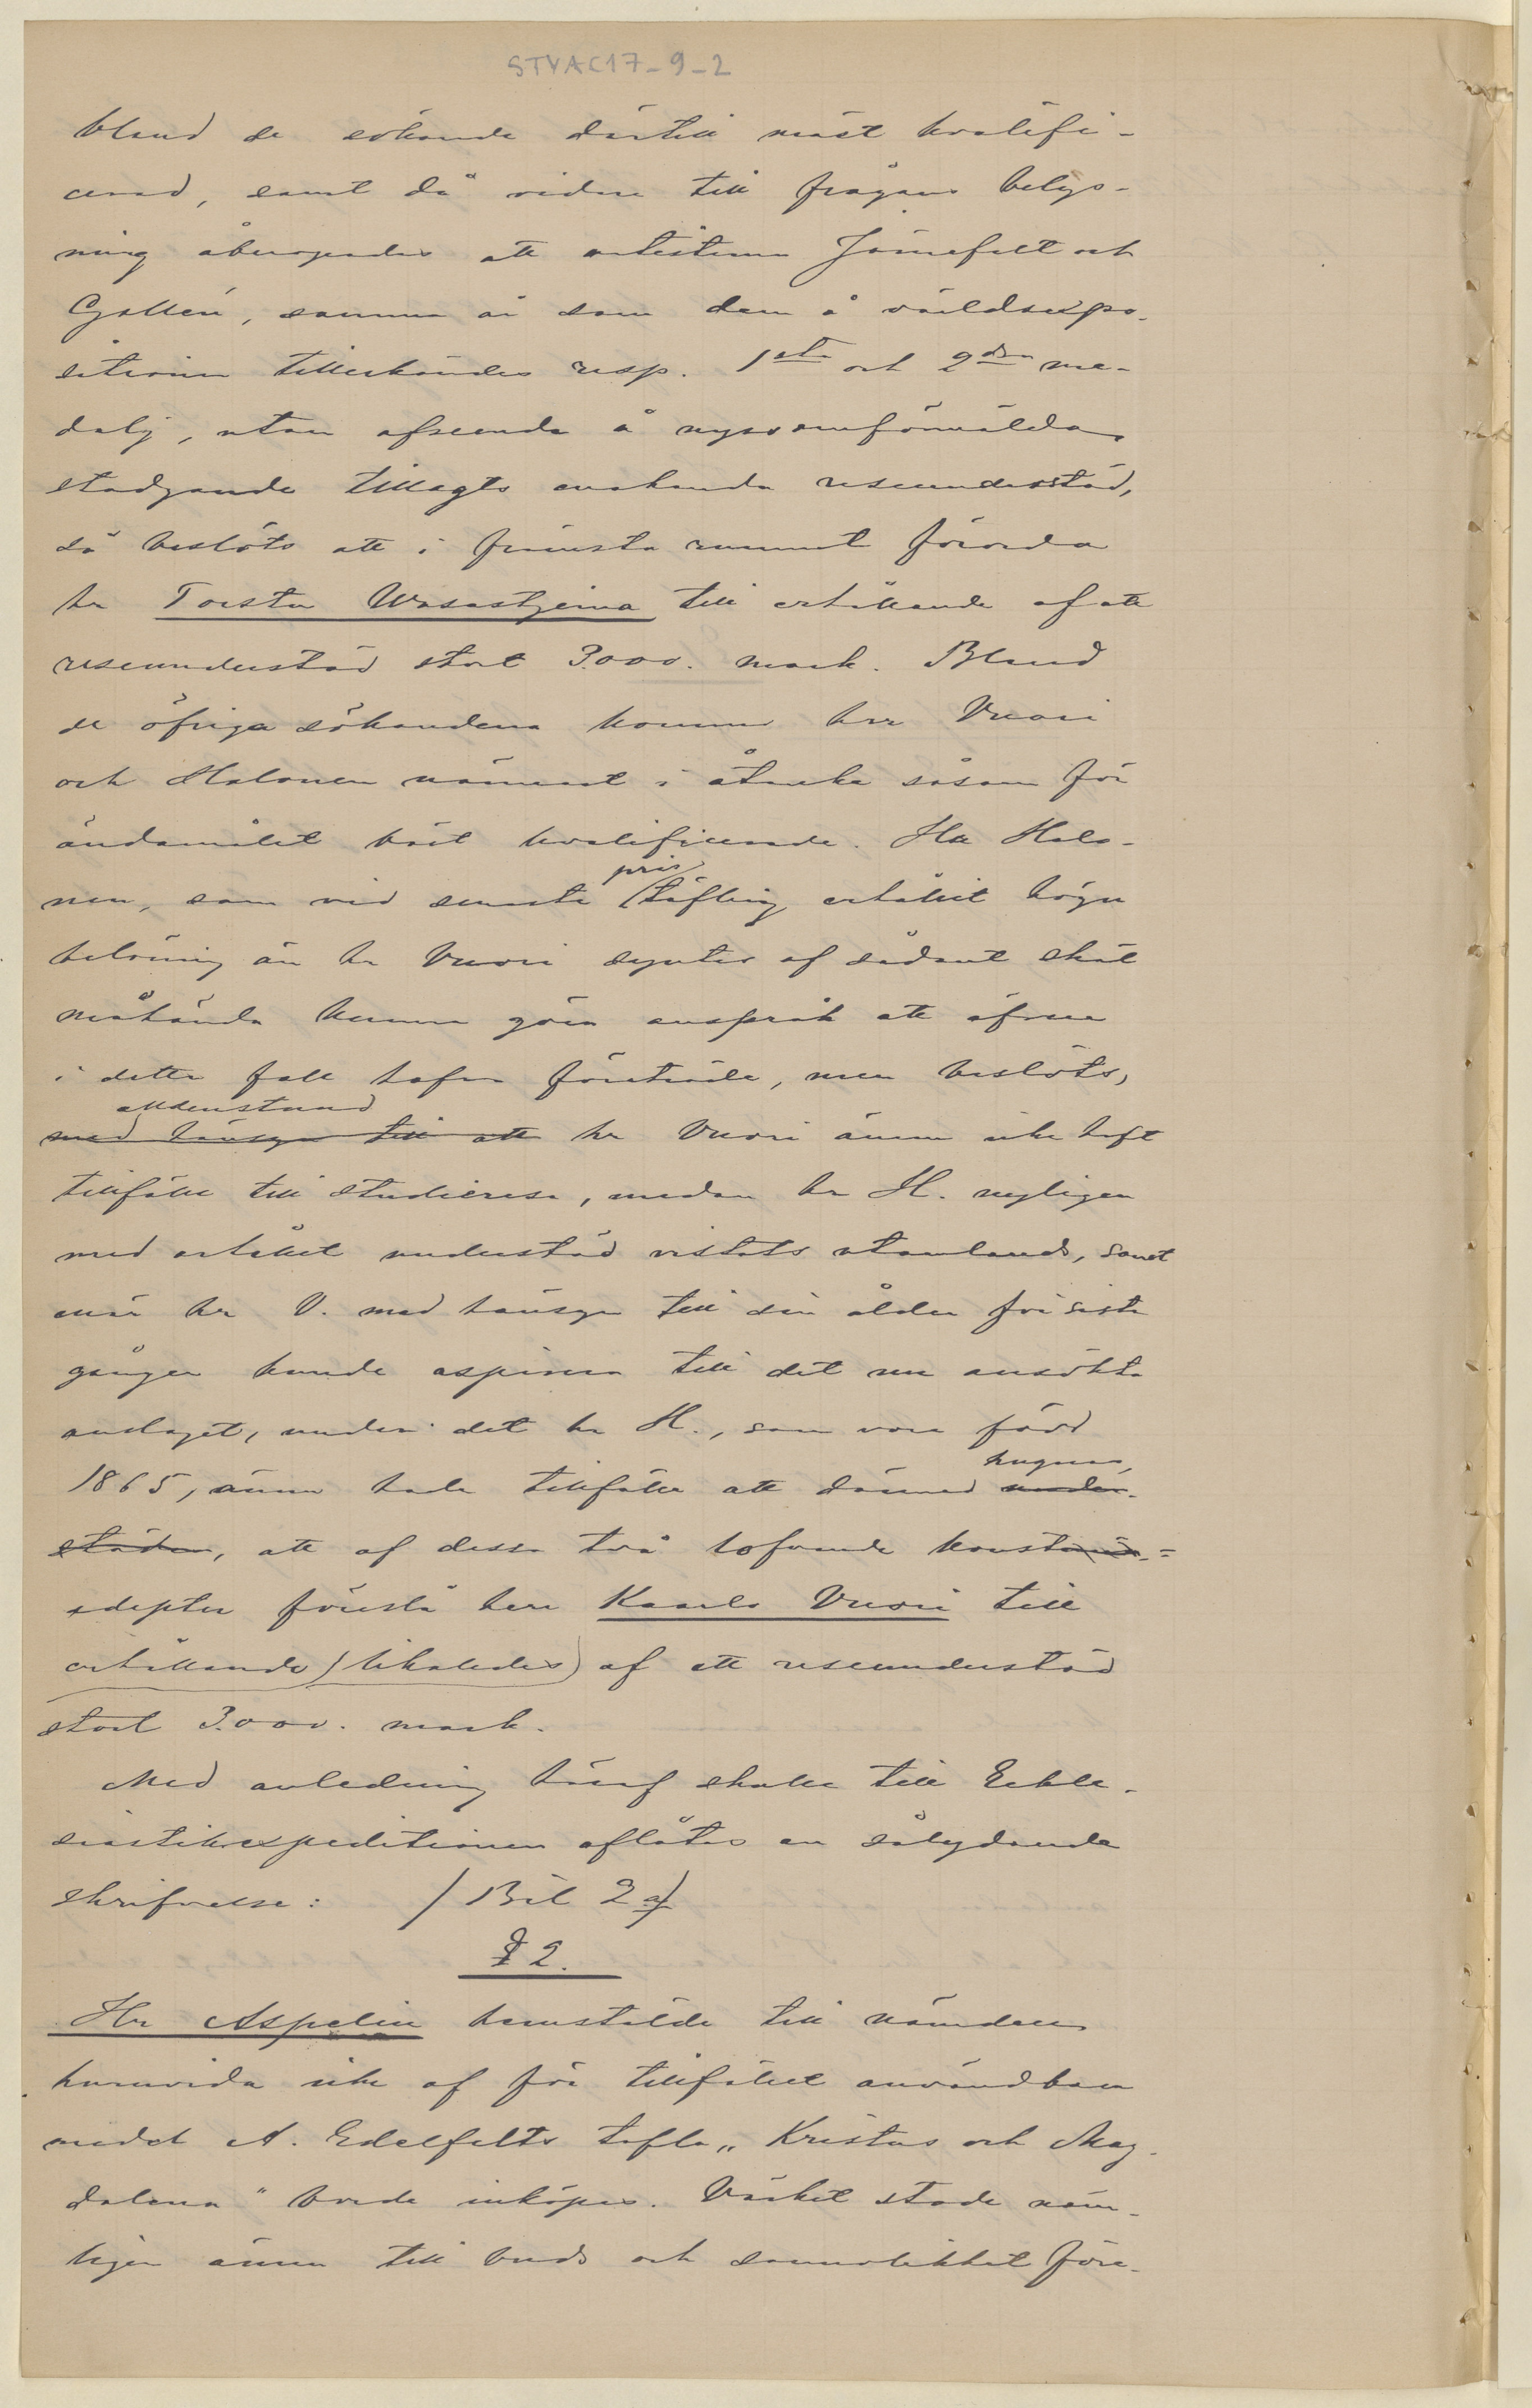 STYAC17-9-2
bland de sökande därtill mäst kvalifi-
cerad, samt då vidare till frågans belys-
ning åberopades att artisterna Järnefelt och
Gallén, samma år som dem å världsexpo-
sitionen tillerkändes resp. 1sta och 2dra me-
dalj, utan afseende å nyssomförmälda
stadgande tillagts enahanda reseunderstöd,
så beslöts att i främsta rummet förorda
hr Torsten Wasastjerna till erhållande af ett
reseunderstöd stort 3.000. mark. Bland
de öfriga sökandena kommo hrr Vuori
och Halonen närmast i åtanke såsom för
ändamålet bäst kvalificerade. Hr Halo-
nen, som vid senaste pristäfling erhållit högre
belöning än hr Vuori syntes af sådant skäl
måhända kunna göra anspråk att äfven
i detta fall hafva företräde, men beslöts,
alldenstund
med hänsyn till att hr Vuori ännu icke haft
tillfälle till studieresa, medan hr H. nyligen
med erhållet understöd vistats utomlands, samt
enär hr V. med hänsyn till sin ålder för sista
gången kunde aspirera till det nu ansökta
anslaget, under det hr H., som vore född
1865, ännu hade tillfälle att därmed hugnas, under-
stödas, att af dessa två lofvande konstnärs-=
adepter föreslå herr Kaarlo Vuori till
erhållande (likaledes) af ett reseunderstöd
stort 3.000. mark.
Med anledning häraf skulle till Eckle-
siastikexpeditionen aflåtas en sålydande
skrifvelse: / Bil 2 a/
§ 2.
Hr Aspelin hemstälde till nämnden
huruvida icke af för tillfället användbara
medel A. Edelfelts tafla „Kristus och Mag-
dalena“ borde inköpas. Värket stode näm-
ligen ännu till buds och sannolikhet före-